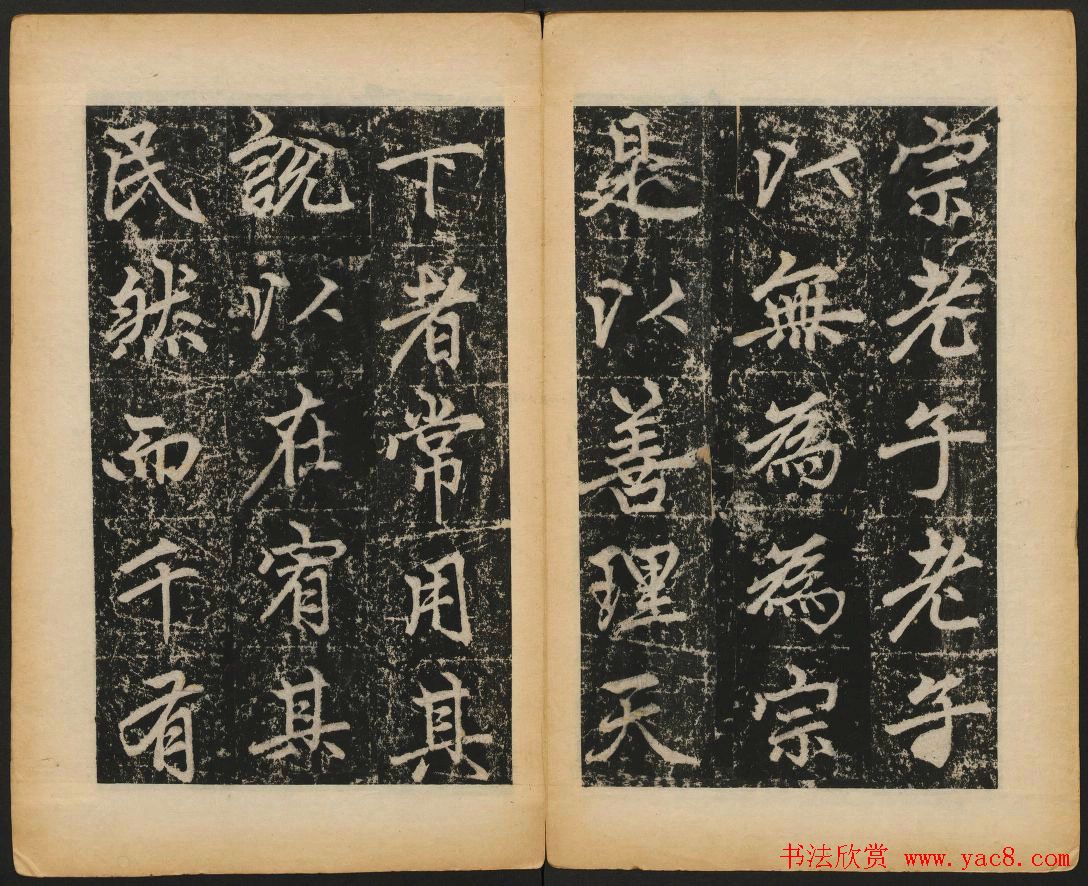 宗老子老子
以無為為宗
是以善理天
下者常用其
說以在宥其
民然而千有
书法欣赏 www.yac8.com